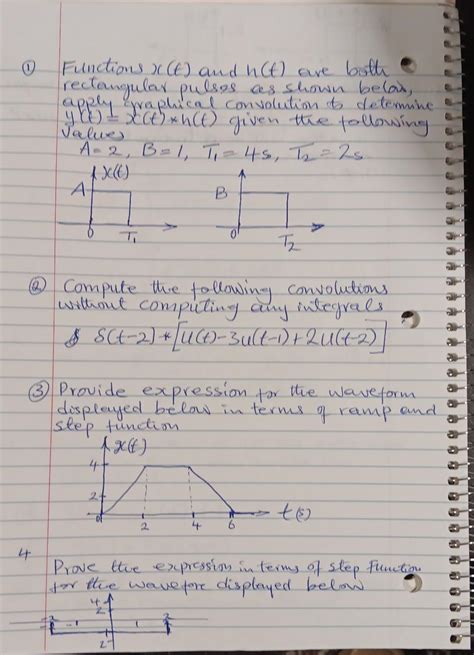 ① Functions x(t) and h(t) are both
rectangular pulses as shown below,
apply graphical convolution to determine
y(t) = x(t) * h(t) given the following
Values
A = 2, B = 1, T₁ = 4s, T₂ = 2s
x(t)
A
B
0
T₁
0
T₂
② Compute the following convolutions
without computing any integrals
δ(t-2) * [u(t) - 3u(t-1) + 2u(t-2)]
③ Provide expression for the waveform
displayed below in terms of ramp and
step function
x(t)
4
2
0
2
4
6
t(s)
4
Prove the expression in terms of step Function
for the wavefore displayed below
4
2
-1
1
2
2-